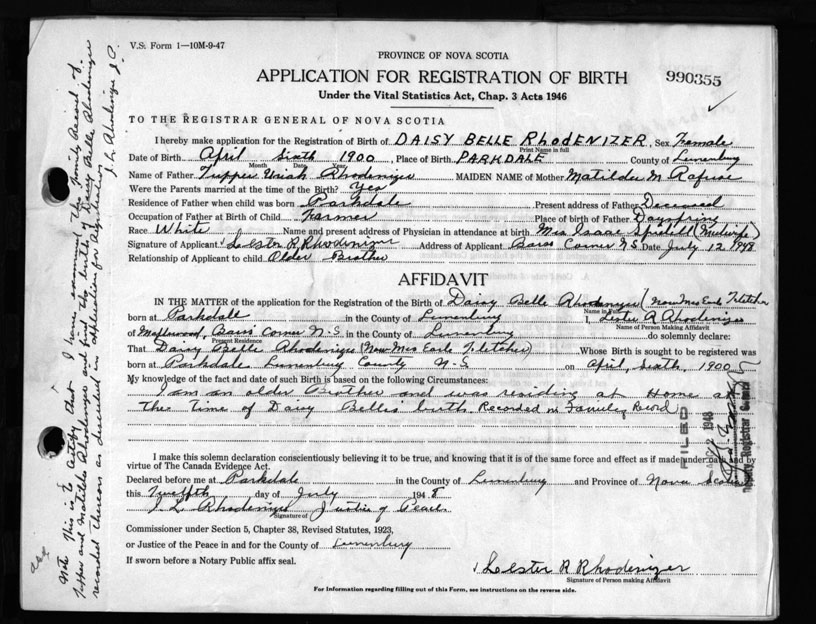 V.S. Form 1—10M-9-47
PROVINCE OF NOVA SCOTIA
APPLICATION FOR REGISTRATION OF BIRTH
990355
Under the Vital Statistics Act, Chap. 3 Acts 1946
TO THE REGISTRAR GENERAL OF NOVA SCOTIA
I hereby make application for the Registration of Birth of DAISY BELLE RHODENIZER, Sex Female
Print Name in full
Date of Birth April sixth 1900, Place of Birth PARKDALE County of Lunenburg
Month Day Year
Name of Father Tupper Uriah Rhodenizer MAIDEN NAME of Mother Matilda M. Rafuse
Were the Parents married at the time of the Birth? Yes
Residence of Father when child was born Parkdale Present address of Father Deceased
Occupation of Father at Birth of Child Farmer Place of birth of Father Dayspring
Race White Name and present address of Physician in attendance at birth Mrs Isaac (Midwife)
Signature of Applicant Lester R Rhodenizer Address of Applicant Barss Corner N S Date July 12 1948
Relationship of Applicant to child Older Brother
AFFIDAVIT
IN THE MATTER of the application for the Registration of the Birth of Daisy Belle Rhodenizer (Now Mrs Earle Fletcher
Name in Full
born at Parkdale in the County of Lunenburg I, Lester R Rhodenizer
Name of Person Making Affidavit
of Maplewood, Barss Corner N-S in the County of Lunenburg do solemnly declare:
Present Residence
That Daisy Belle Rhodenizer (Now Mrs Earle Fletcher) Whose Birth is sought to be registered was
born at Parkdale Lunenburg County N-S on April, sixth, 1900
My knowledge of the fact and date of such Birth is based on the following Circumstances:
I am an older Brother and was residing at Home at
The Time of Daisy Belle's birth. Recorded in Family Record
I make this solemn declaration conscientiously believing it to be true, and knowing that it is of the same force and effect as if made under oath and by
virtue of The Canada Evidence Act.
Declared before me at Parkdale in the County of Lunenburg and Province of Nova Scotia
this Twelfth day of July 1948
J. L Rhodenizer Justice of Peace
Signature of
Commissioner under Section 5, Chapter 38, Revised Statutes, 1923,
or Justice of the Peace in and for the County of Lunenburg
If sworn before a Notary Public affix seal.
Lester R Rhodenizer
Signature of Person making Affidavit
For Information regarding filling out of this Form, see instructions on the reverse side.
FILED
1948
Deputy Registrar General
Note This is to Certify that I have examined the family Record of
Tupper and Matilda Rhodenizer and find the birth of Daisy Belle Rhodenizer
recorded thereon as described in application for Registration
J. L. Rhodenizer J. P.